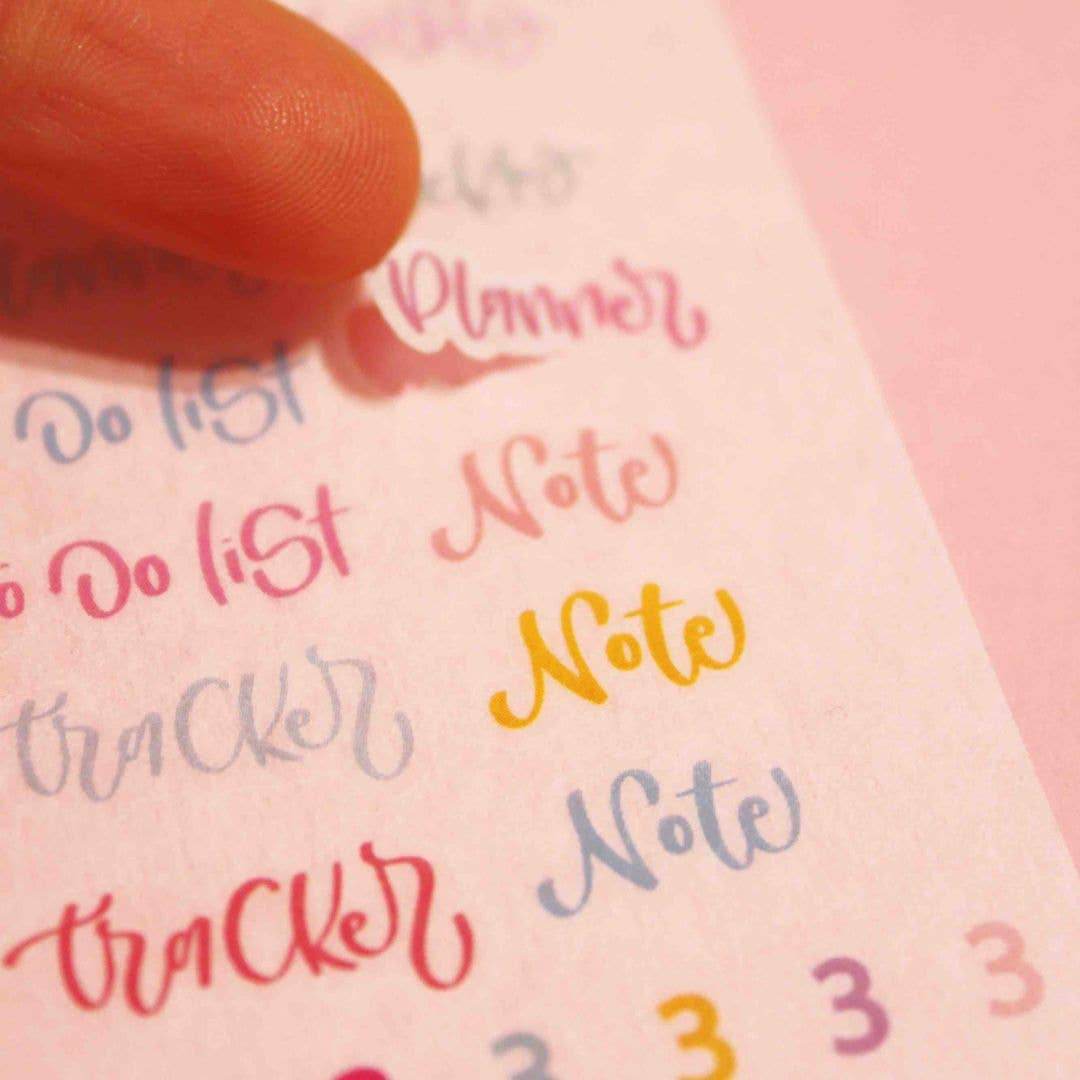 Planner
Do list
Note
Do list
Note
tracker
Note
tracker
3
3
3
3